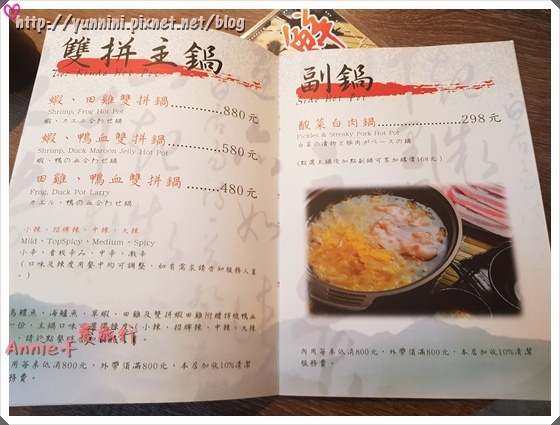 http://yunnini.pixnet.net/blog
雙拼主鍋
蝦、田雞雙拼鍋..........880元
Shrimp, Frog Hot Pot
蝦、カエル合わせ鍋
蝦、鴨血雙拼鍋..........580元
Shrimp, Duck Maroon Jelly Hot Pot
蝦、鴨の血合わせ鍋
田雞、鴨血雙拼鍋........480元
Frog, Duck Pot Larry
カエル、鴨の血合わせ鍋
小辣、招牌辣、中辣、大辣
Mild, TopSpicy, Medium, Spicy
小辛、看板辛み、中辛、激辛
(口味及辣度用餐中均可調整，如有需求請告知服務人員
。)
烏鱧魚、海鱸魚、草蝦、田雞及雙拼蝦田雞附贈拼椒鴨血
一份，主鍋口味
小辣、招牌辣、中辣、大辣
Annie
內用每桌低消800元，外帶須滿800元，本店加收10%清潔
服務費。
副鍋
Side Hot Pot
酸菜白肉鍋..........298元
Pickles & Streaky Pork Hot Pot
白菜の漬物と豚肉がベースの鍋
(點選主鍋後加點副鍋可享加購價168元)
內用每桌低消800元，外帶須滿800元，本店加收10%清潔
服務費。